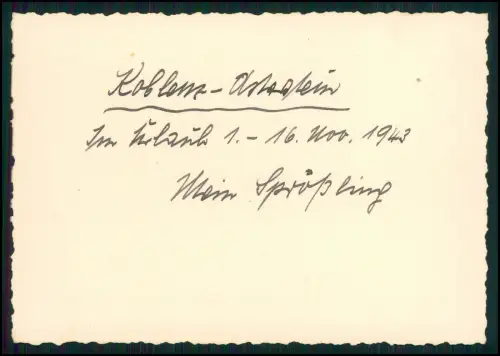 Koblenz-Asterstein
Im Urlaub 1. - 16. Nov. 1943
Mein Sprößling